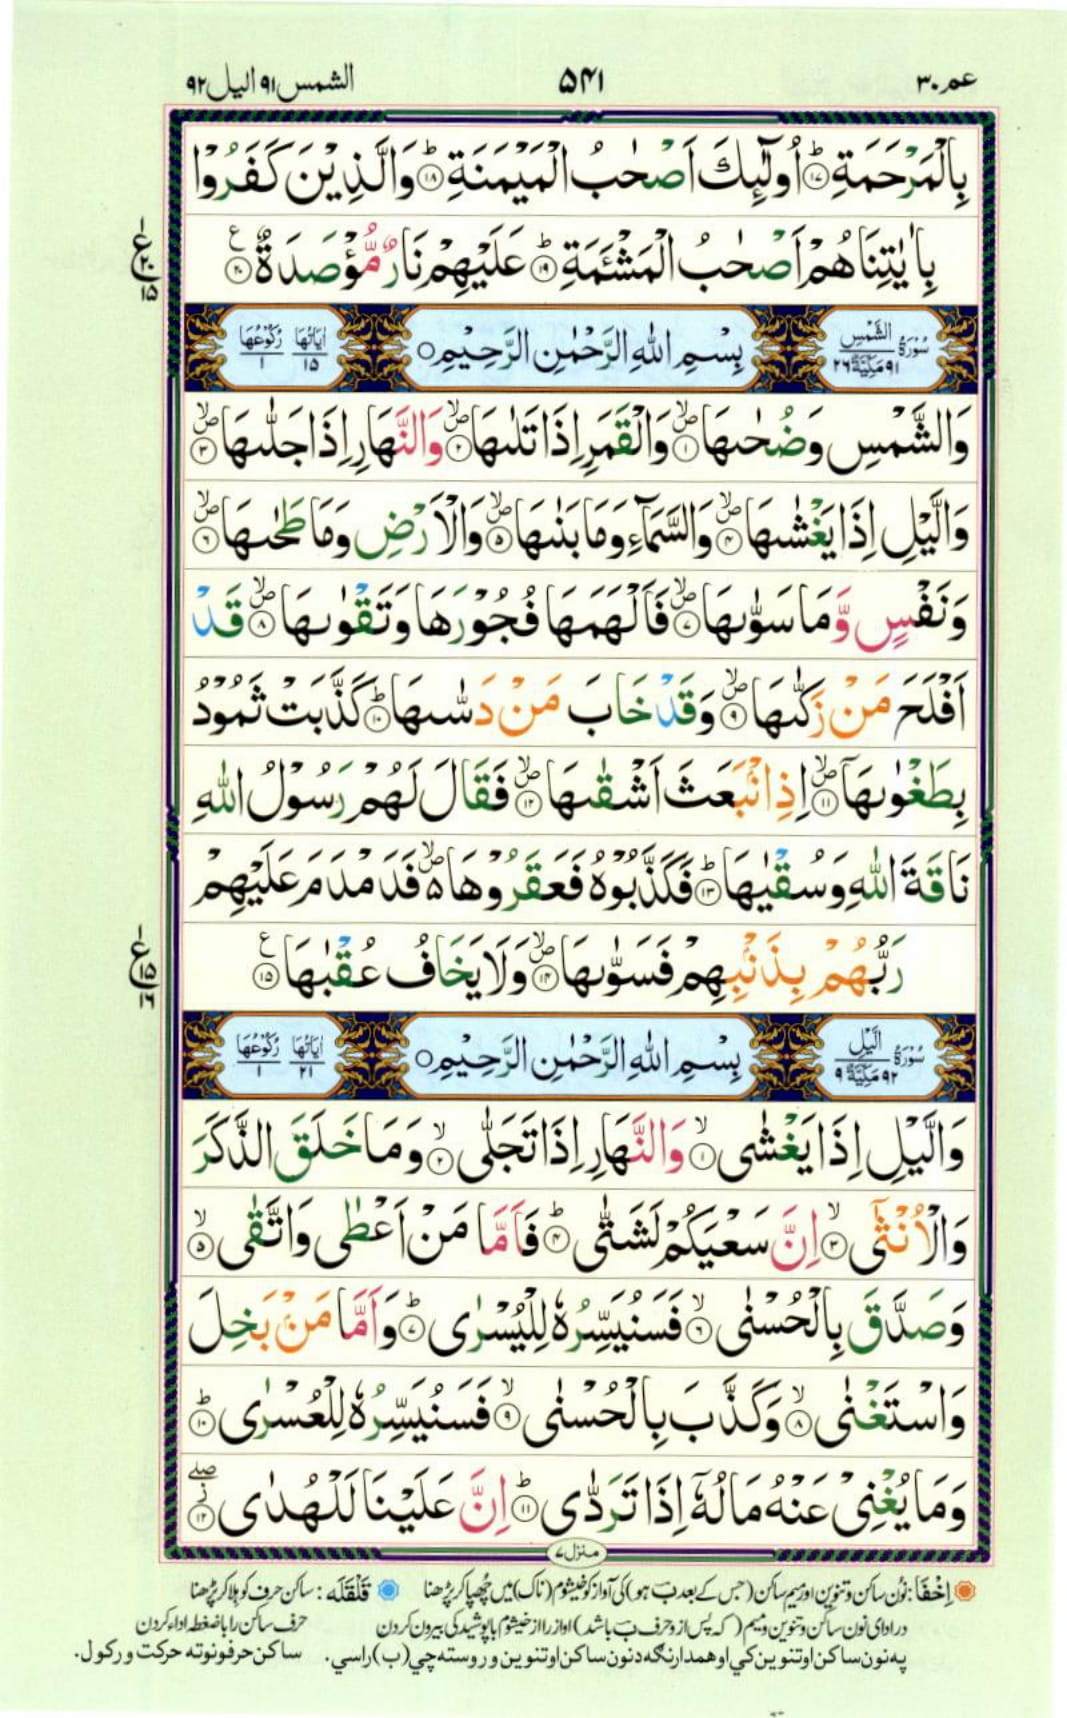 عم ۳۰
۵۴۱
الشمس ۹۱ اليل ۹۲
بِالْمَرْحَمَةِ ؕ ۱۷ اُولٰٓئِكَ اَصْحٰبُ الْمَيْمَنَةِ ؕ ۱۸ وَالَّذِيْنَ كَفَرُوْا
بِاٰيٰتِنَا هُمْ اَصْحٰبُ الْمَشْـَٔمَةِ ؕ ۱۹ عَلَيْهِمْ نَارٌ مُّؤْصَدَةٌ ۲۰ ع
ع ۲۰ ۱۵
سُوْرَةُ الشَّمْسِ ۹۱ مَكِّيَّةٌ ۲۶
بِسْمِ اللهِ الرَّحْمٰنِ الرَّحِيْمِ
اٰيَاتُهَا ۱۵ رُكُوْعُهَا ۱
وَالشَّمْسِ وَضُحٰىهَا ۱ وَالْقَمَرِ اِذَا تَلٰىهَا ۲ وَالنَّهَارِ اِذَا جَلّٰىهَا ۳
وَالَّيْلِ اِذَا يَغْشٰىهَا ۴ وَالسَّمَآءِ وَمَا بَنٰىهَا ۵ وَالْاَرْضِ وَمَا طَحٰىهَا ۶
وَنَفْسٍ وَّمَا سَوّٰىهَا ۷ فَاَلْهَمَهَا فُجُوْرَهَا وَتَقْوٰىهَا ۸ قَدْ
اَفْلَحَ مَنْ زَكّٰىهَا ۹ وَقَدْ خَابَ مَنْ دَسّٰىهَا ؕ ۱۰ كَذَّبَتْ ثَمُوْدُ
بِطَغْوٰىهَآ ۱۱ اِذِ انْۢبَعَثَ اَشْقٰىهَا ۱۲ فَقَالَ لَهُمْ رَسُوْلُ اللهِ
نَاقَةَ اللهِ وَسُقْيٰهَا ؕ ۱۳ فَكَذَّبُوْهُ فَعَقَرُوْهَا ۵ فَدَمْدَمَ عَلَيْهِمْ
رَبُّهُمْ بِذَنْۢبِهِمْ فَسَوّٰىهَا ۱۴ وَلَا يَخَافُ عُقْبٰهَا ۱۵ ع
ع ۱۵ ۱۶
سُوْرَةُ الَّيْلِ ۹۲ مَكِّيَّةٌ ۹
بِسْمِ اللهِ الرَّحْمٰنِ الرَّحِيْمِ
اٰيَاتُهَا ۲۱ رُكُوْعُهَا ۱
وَالَّيْلِ اِذَا يَغْشٰى ۱ وَالنَّهَارِ اِذَا تَجَلّٰى ۲ وَمَا خَلَقَ الذَّكَرَ
وَالْاُنْثٰٓى ۳ اِنَّ سَعْيَكُمْ لَشَتّٰى ؕ ۴ فَاَمَّا مَنْ اَعْطٰى وَاتَّقٰى ۵
وَصَدَّقَ بِالْحُسْنٰى ۶ فَسَنُيَسِّرُهٗ لِلْيُسْرٰى ؕ ۷ وَاَمَّا مَنْۢ بَخِلَ
وَاسْتَغْنٰى ۸ وَكَذَّبَ بِالْحُسْنٰى ۹ فَسَنُيَسِّرُهٗ لِلْعُسْرٰى ؕ ۱۰
وَمَا يُغْنِيْ عَنْهُ مَالُهٗٓ اِذَا تَرَدّٰى ؕ ۱۱ اِنَّ عَلَيْنَا لَلْهُدٰى ۱۲
منزل ۷
اِخْفَا: نون ساکن و تنوین اور میم ساکن (جس کے بعد ب ہو) کی آواز کو خیشوم (ناک) میں چھپا کر پڑھنا قَلْقَلَه: ساکن حرف کو ہلا کر پڑھنا
در ادای نون ساکن و تنوین و میم (که پس از و حرف ب باشد) آواز را از خیشوم با پوشیدگی بیرون کردن حرف ساکن را باضغطه اداء کردن
په نون ساکن او تنوین کي او همدارنگه د نون ساکن او تنوین وروسته چي (ب) راسي. ساکن حرفونو ته حرکت ورکول.